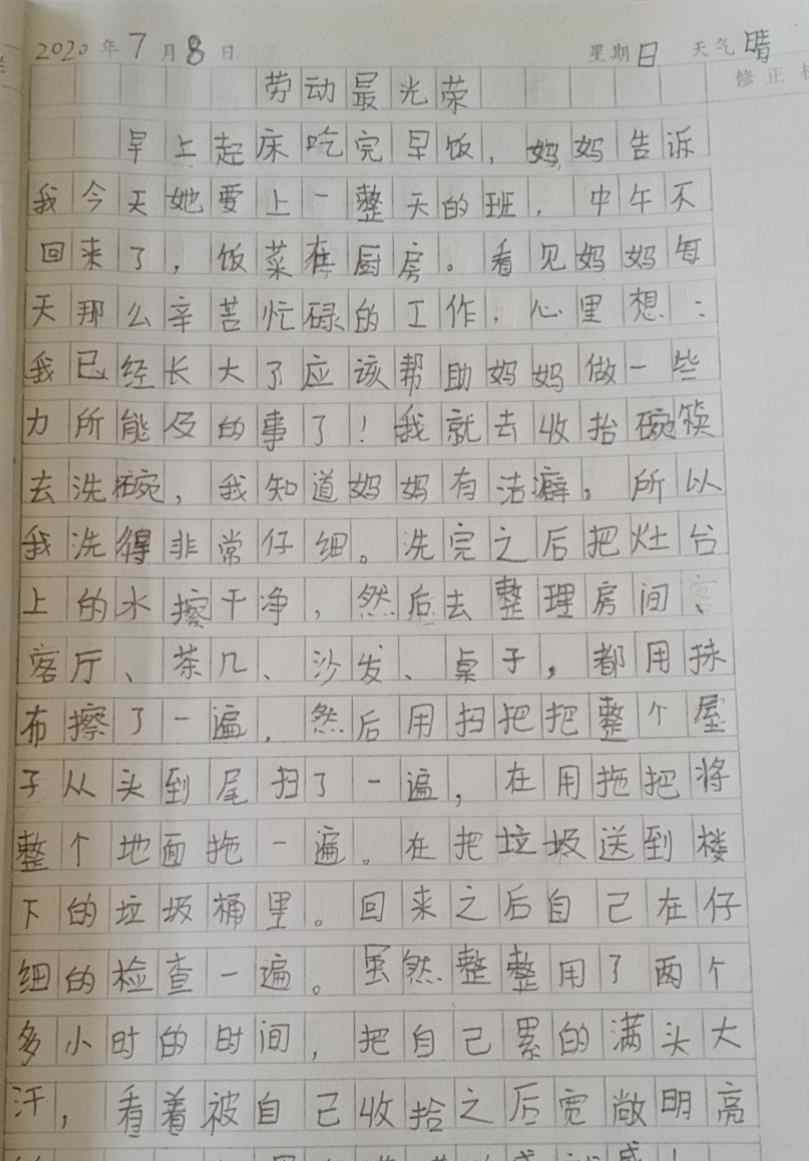 2020年7月8日 星期日 天气晴
修正
劳动最光荣
早上起床吃完早饭，妈妈告诉
我今天她要上一整天的班，中午不
回来了，饭菜在厨房。看见妈妈每
天那么辛苦忙碌的工作，心里想：
我已经长大了应该帮助妈妈做一些
力所能及的事了！我就去收拾碗筷
去洗碗，我知道妈妈有洁癖，所以
我洗得非常仔细。洗完之后把灶台
上的水擦干净，然后去整理房间、
客厅、茶几、沙发、桌子，都用抹
布擦了一遍，然后用扫把把整个屋
子从头到尾扫了一遍，在用拖把将
整个地面拖一遍。在把垃圾送到楼
下的垃圾桶里。回来之后自己在仔
细的检查一遍。虽然整整用了两个
多小时的时间，把自己累的满头大
汗，看着被自己收拾之后宽敞明亮